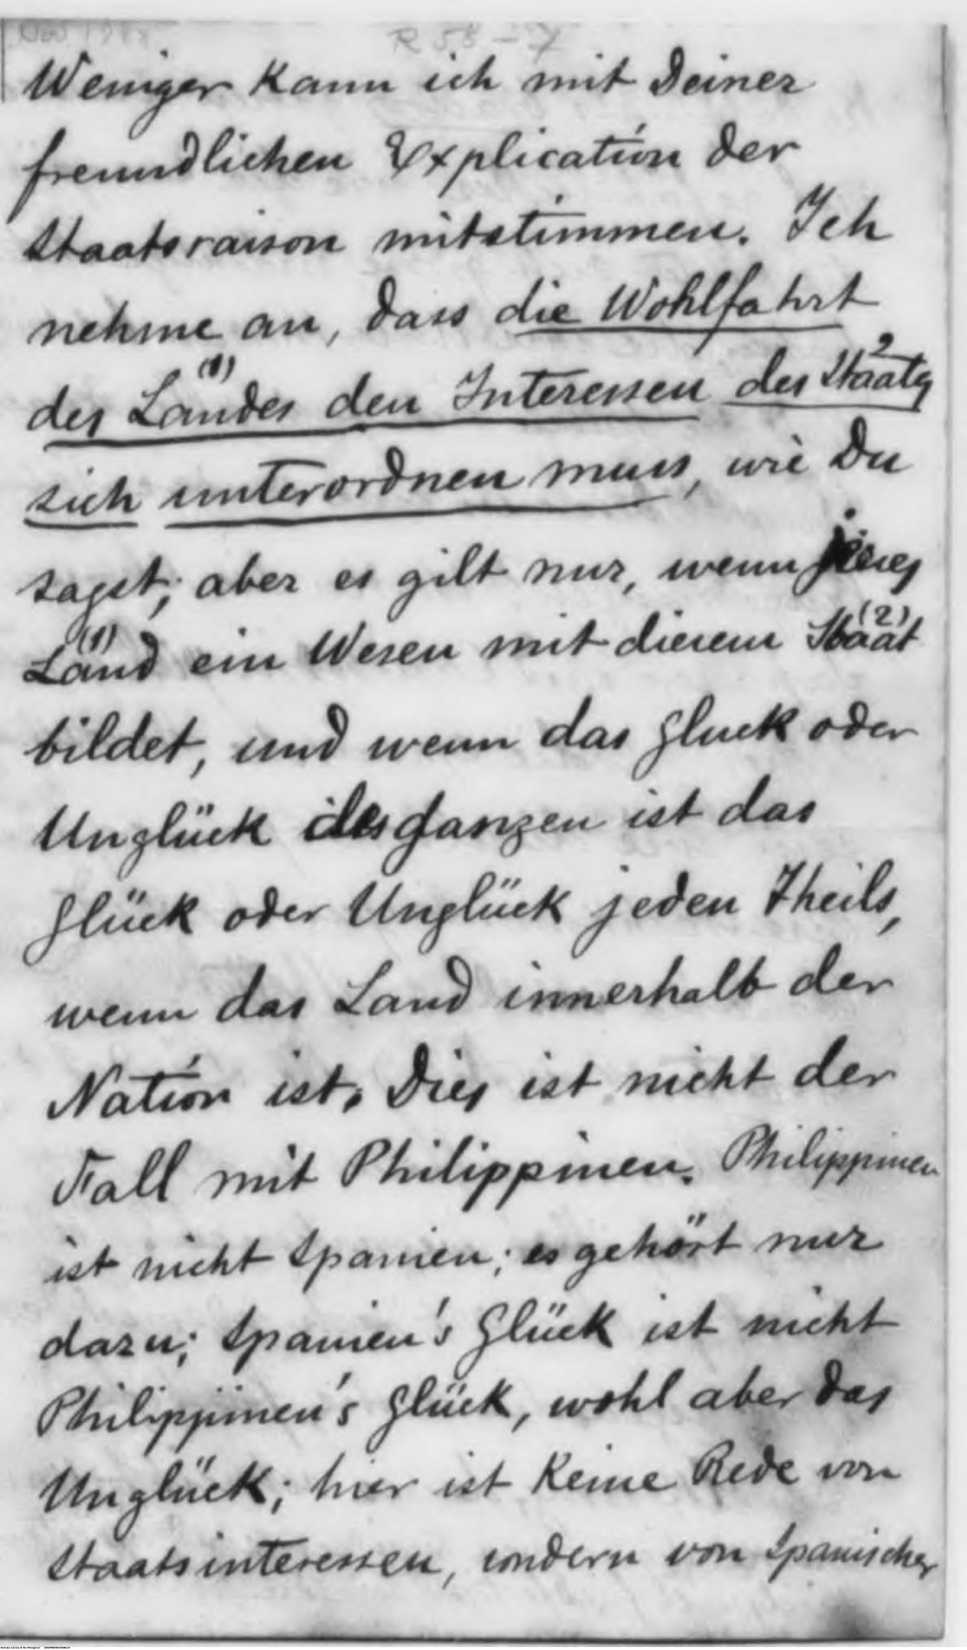 R 58 - 7
Weniger kann ich mit Deiner
freundlichen Explication der
Staatsraison mitstimmen. Ich
nehme an, dass die Wohlfahrt
des Landes (1) den Interessen des Staates 2
sich unterordnen muss, wie Du
sagst; aber es gilt nur, wenn jenes
Land (1) ein Wesen mit diesem Staat (2)
bildet, und wenn das Gluck oder
Unglück des Ganzen ist das
Glück oder Unglück jeden Theils,
wenn das Land innerhalb der
Nation ist. Dies ist nicht der
Fall mit Philippinen. Philippinen
ist nicht Spanien; es gehört nur
dazu; Spanien's Glück ist nicht
Philippinen's Glück, wohl aber das
Unglück; hier ist keine Rede von
Staatsinteressen, sondern von Spanischer